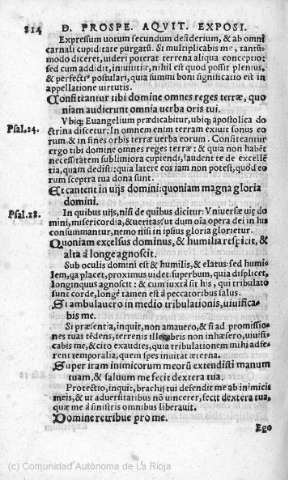 814 D. PROSPE. AQVIT. EXPOSI.
Expressum uotum secundum desiderium, & ab omni
carnali cupiditate purgatũ. Si multiplicabis me, tantũ-
modo diceret, uideri poterat terrena aliqua concepisse:
sed cum addidit, inuirtute, nihil est quod possit plenius,
& perfectiꝰ postulari, quia summi boni significatio est in
appellatione uirtutis.
Confiteantur tibi domine omnes reges terræ, quo
niam audierunt omnia uerba oris tui.
Psal.14. Vbiq; Euangelium prædicabitur, ubiq; apostolica do
ctrina discetur: In omnem enim terram exiuit sonus eo
rum, & in fines orbis terræ uerba eorum. Confiteantur
ergo tibi domine omnes reges terræ: & quia non habẽt
necessitatem sublimiora cupiendi, laudent te de excellẽ
tia, quam dedisti: quia latere eos iam non potest, quòd eo
rum sceptra tua dona sunt.
Et cantent in uijs domini: quoniam magna gloria
domini.
Psal.28. In quibus uijs, nisi de quibus dicitur: Vniuersæ uię do
mini, misericordia, & ueritas: ut dum oĩa opera dei in his
consummantur, nemo nisi in ipsius gloria glorietur.
Quoniam excelsus dominus, & humilia respicit, &
alta à longe agnoscit.
Sub oculis domini est & humilis, & elatus: sed humi
lem, ꝗa placet, proximus uidet: superbum, quia displicet,
longinquus agnoscit: & cum iuxtà sit his, qui tribulato
sunt corde, longè tamen est à peccatoribus salus.
Si ambulauero in medio tribulationis, uiuifica
bis me.
Si præsentia, inquit, non amauero, & si ad promissio
nes tuas tẽdens, terrenis illecebris non inhæsero, uiuifi-
cabis me, & cito exaudies, quia tribulationem mihi adfe-
rent temporalia, quem spes inuitat æterna.
Super iram inimicorum meorũ extendisti manum
tuam, & saluum me fecit dextera tua.
Protectio, inquit, brachij tui defendit me ab inimicis
meis, & ut aduersitatibus nõ uincerer, fecit dextera tua,
quæ me à sinistris omnibus liberauit.
Domine retribue pro me.
Ego
(c) Comunidad Autónoma de La Rioja